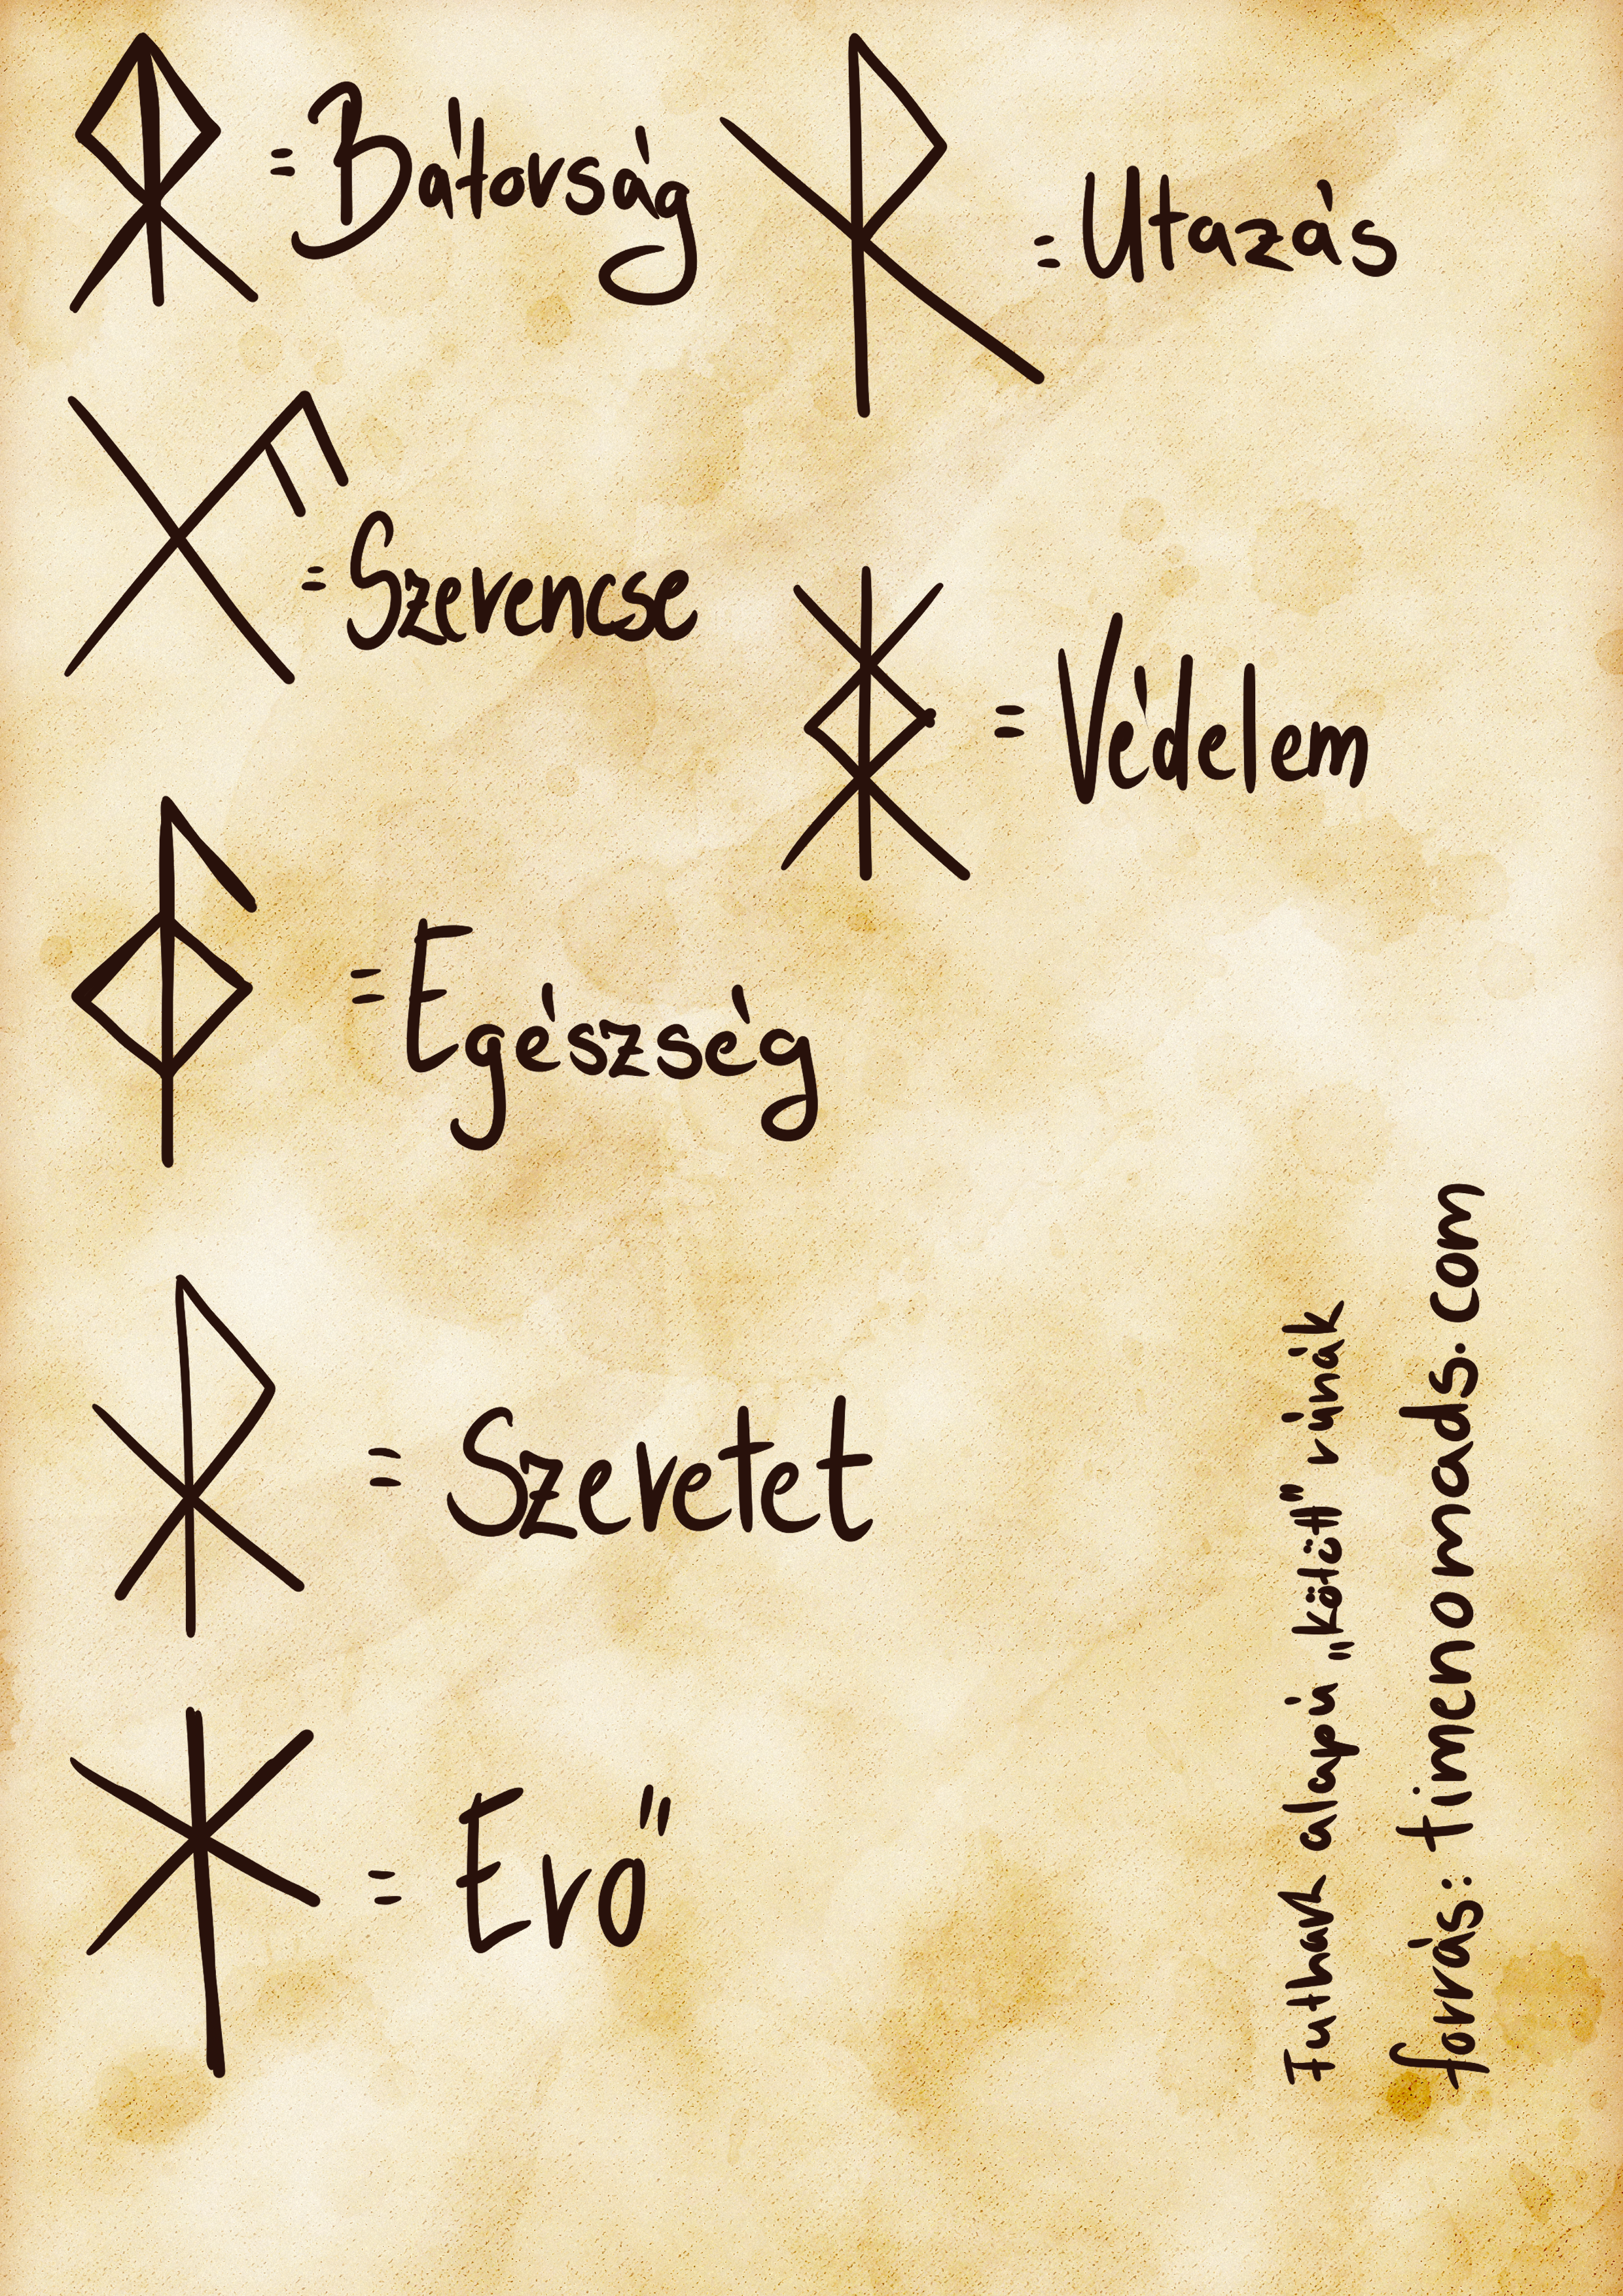 = Bátorság
= Utazás
= Szerencse
= Védelem
= Egészség
= Szeretet
= Erő
Futhark alapú „kötött" rúnák
forrás: timenomads.com